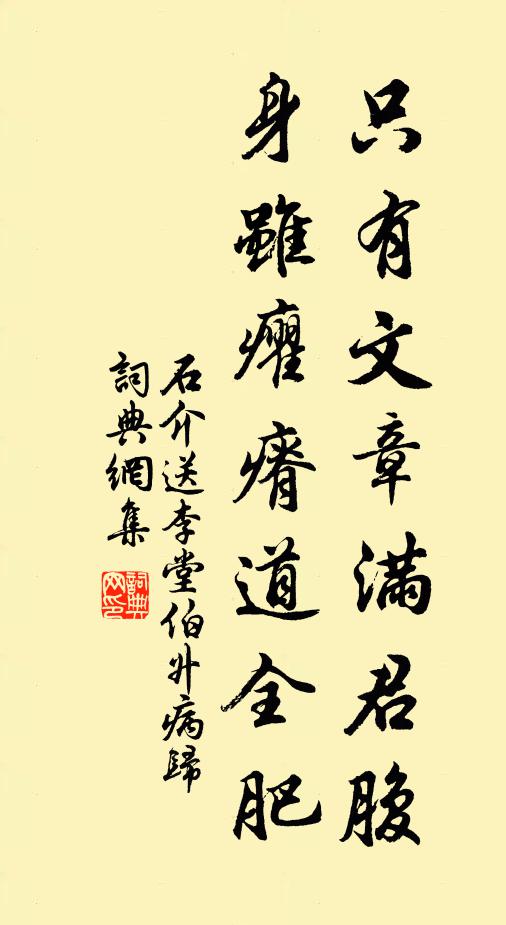 只有文章滿君腹
身雖癯瘠道全肥
石介送李堂伯升病歸
詞典網集
詞典网印